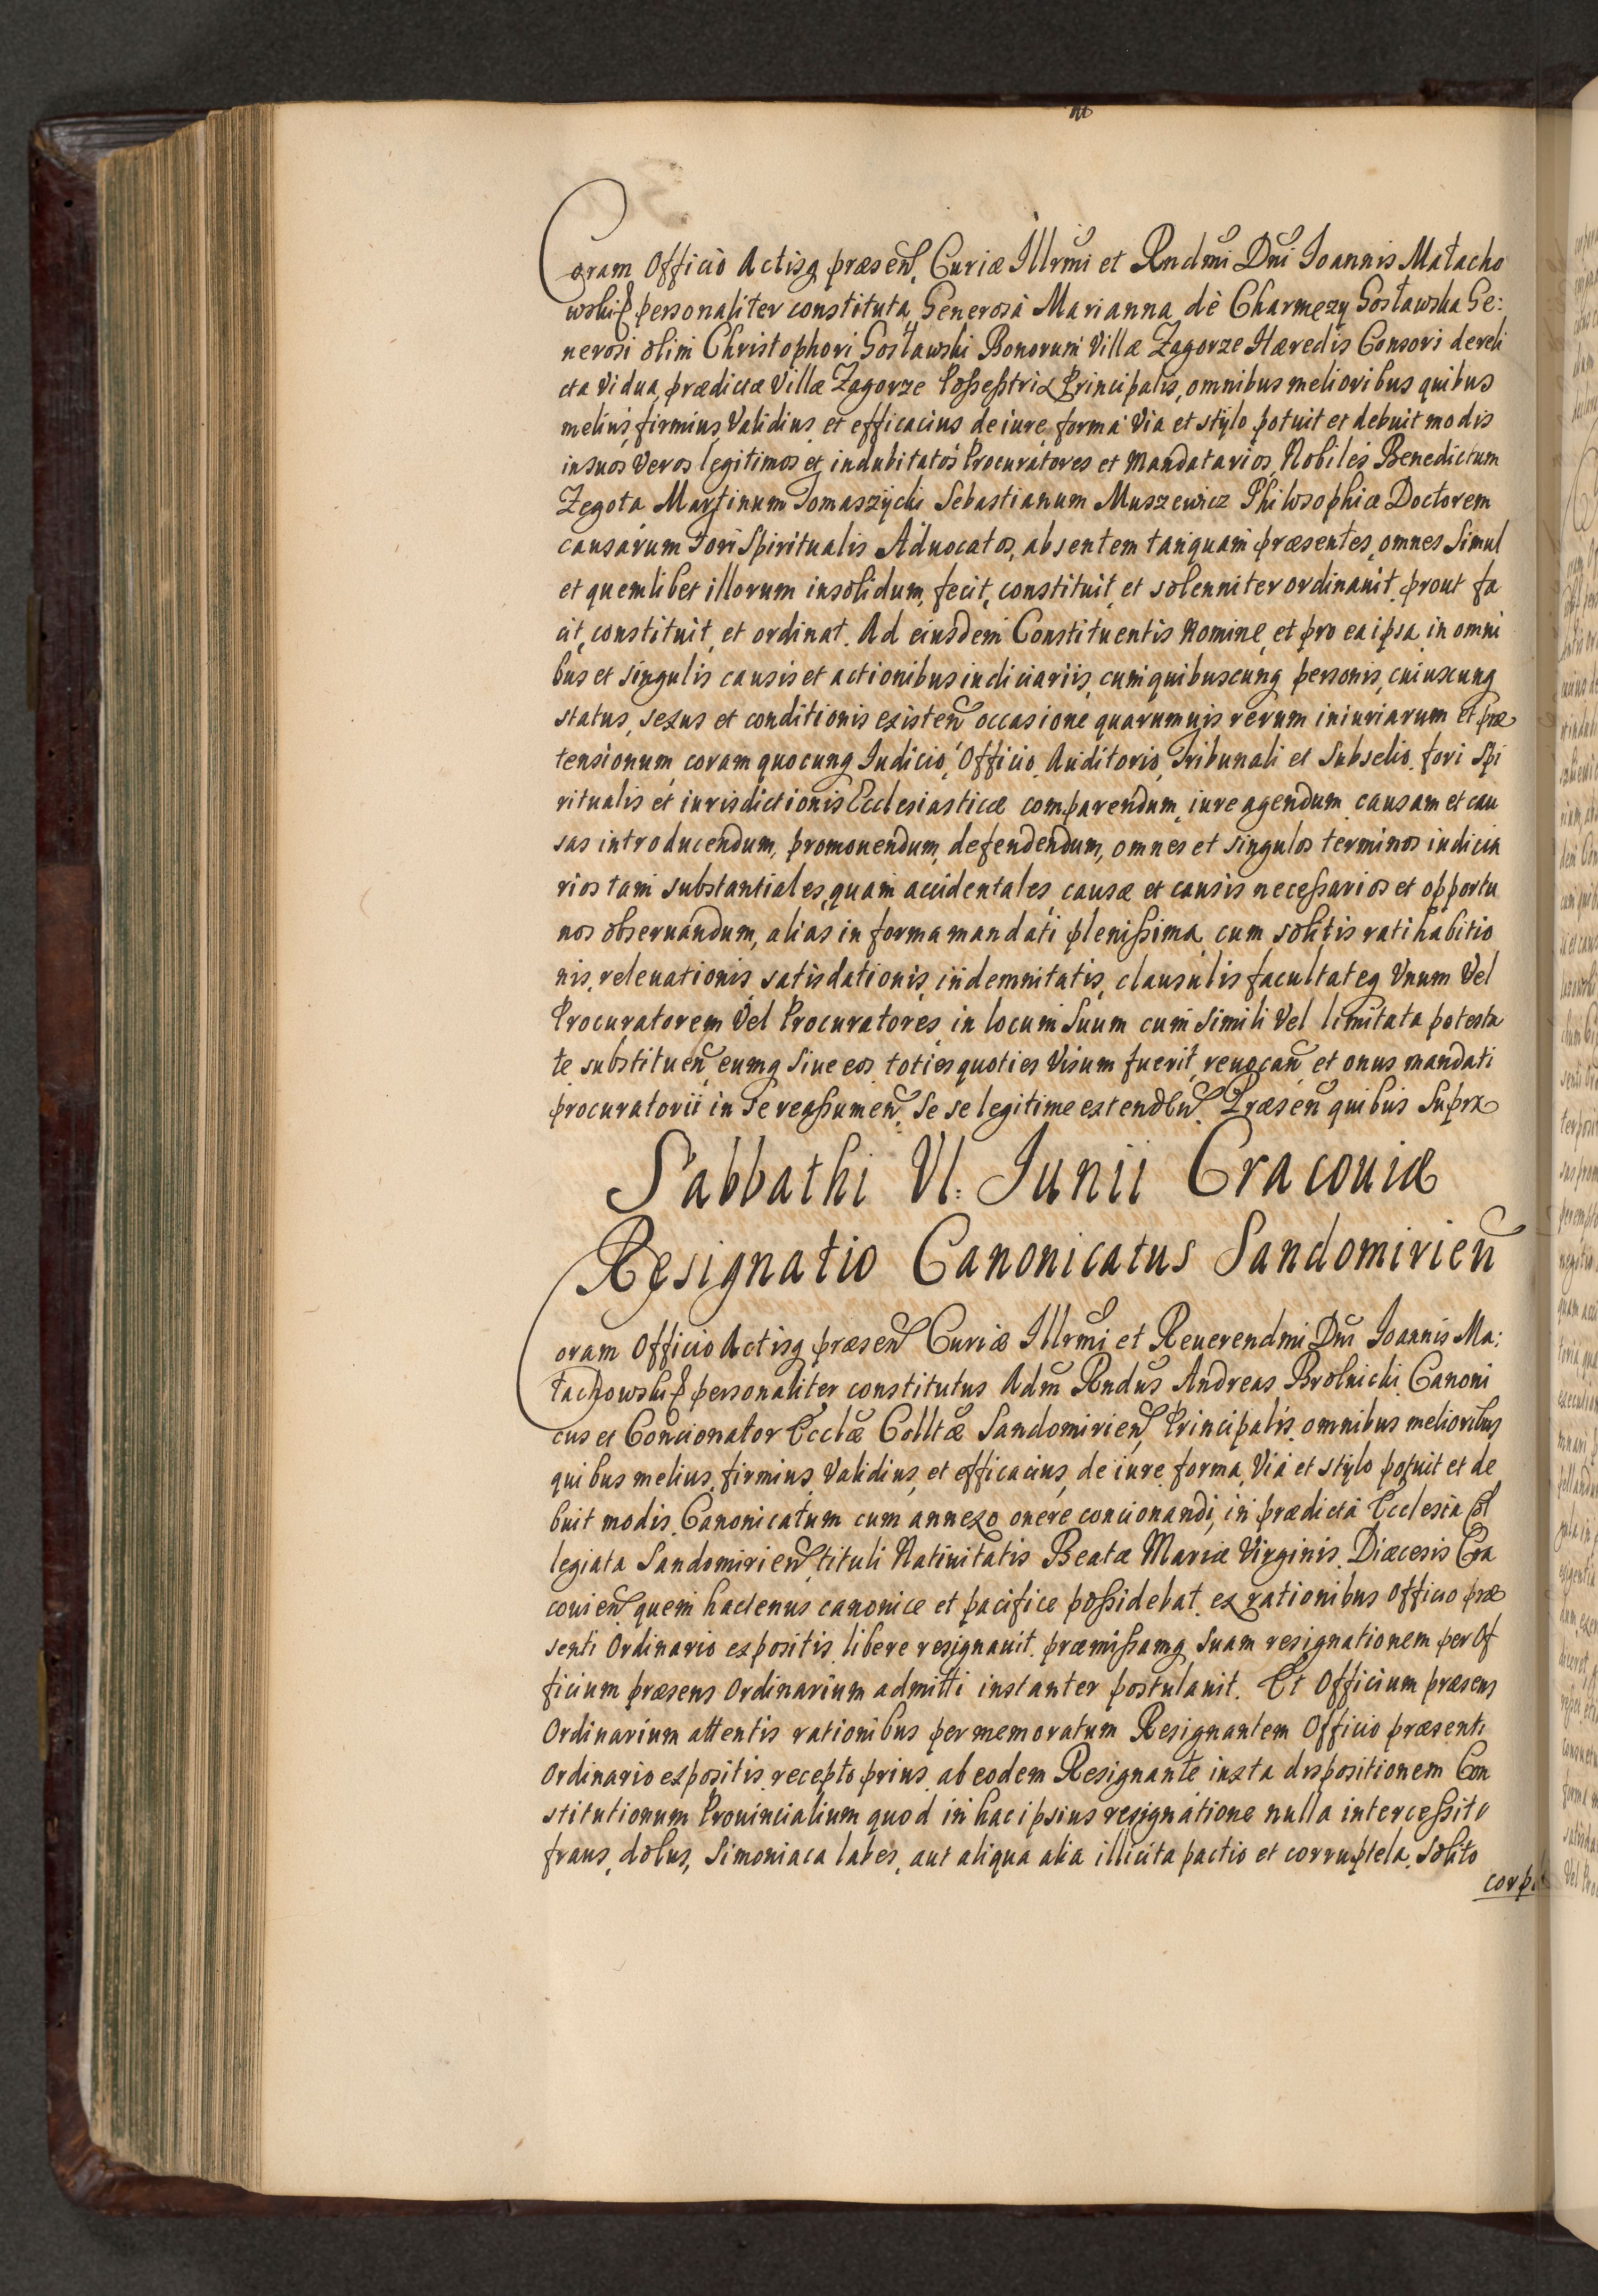 Coram Officio Actisq præsen. Curiæ Illrmi et Rndmi Dni Ioannis Małacho
wski personaliter constituta Generosa Marianna de Charmęzy Gosławska Ge:
nerosi olim Christophori Gosławski Bonorum Villæ Zagorze Hæredis Consors dereli
cta Vidua, prædictæ Villæ Zagorze Possesstrix Principalis, omnibus melioribus quibus
melius, firmius, Validius, et efficacius de iure, forma Via et stylo potuit et debuit modis
in suos Veros legitimos et indubitatos Procuratores et Mandatarios, Nobiles Benedictum
Zegota Martinum Tomaszycki Sebastianum Muszewicz Philosophiæ Doctorem
causarum Fori Spiritualis Aduocatos, absentem tanquam præsentes, omnes Simul
et quemlibet illorum insolidum, fecit, constituit, et solenniter ordinauit, prout fa
cit, constituit, et ordinat. Ad eiusdem Constituentis Nomine, et pro ea ipsa, in omni
bus et singulis causis et actionibus iudiciariis, cum quibuscunq personis, cuiuscunq
status, sexus et conditionis existen occasione quarumuis rerum iniuriarum et præ
tensionum, coram quocunq Iudicio, Officio, Auditorio, Tribunali et Subselio, fori Spi
ritualis et iurisdictionis Ecclesiasticæ comparendum, iure agendum, causam et cau
sas introducendum, promouendum, defendendum, omnes et singulos terminos iudicia
rios tam substantiales, quam accidentales, causæ et causis necessarios et opportu
nos obseruandum, alias in forma mandati plenissima, cum solitis ratihabitio
nis, releuationis, satisdationis, indemnitatis, clausulis facultateq Vnum Vel
Procuratorem Vel Procuratores, in locum Suum cum Simili Vel limitata potesta
te substituen, eumq Siue eos toties quoties Visum fuerit, reuocan, et onus mandati
procuratorii in Se reassumen, Se se legitime extenden. Præsen quibus Supra
Sabbathi VI. Iunii Cracouiæ
Resignatio Canonicatus Sandomirien
Coram Officio Actisq præsen Curiæ Illrmi et Reuerendmi Dni Ioannis Ma:
łachowski personaliter constitutus Adm Rndus Andreas Brolnicki Canoni
cus et Concionator Ecclæ Colltæ Sandomirien, Principalis, omnibus melioribus
quibus melius, firmius, Validius, et efficacius, de iure, forma, Via et stylo potuit et de
buit modis, Canonicatum cum annexo onere concionandi, in prædicta Ecclesia Col
legiata Sandomirien, tituli Natiuitatis Beatæ Mariæ Virginis, Diæcesis Cra
couien quem hactenus canonice et pacifice possidebat, ex rationibus Officio præ
senti Ordinario expositis, libere resignauit, præmissamq Suam resignationem per Of
ficium præsens Ordinarium admitti instanter postulauit. Et Officium præsens
Ordinarium attentis rationibus per memoratum Resignantem Officio præsenti
Ordinario expositis, recepto prius ab eodem Resignante iuxta dispositionem Con
stitutionum Prouincialium quod in hac ipsius resignatione nulla intercessit
fraus, dolus, Simoniaca labes, aut aliqua alia illicita pactio et corruptela, Solito